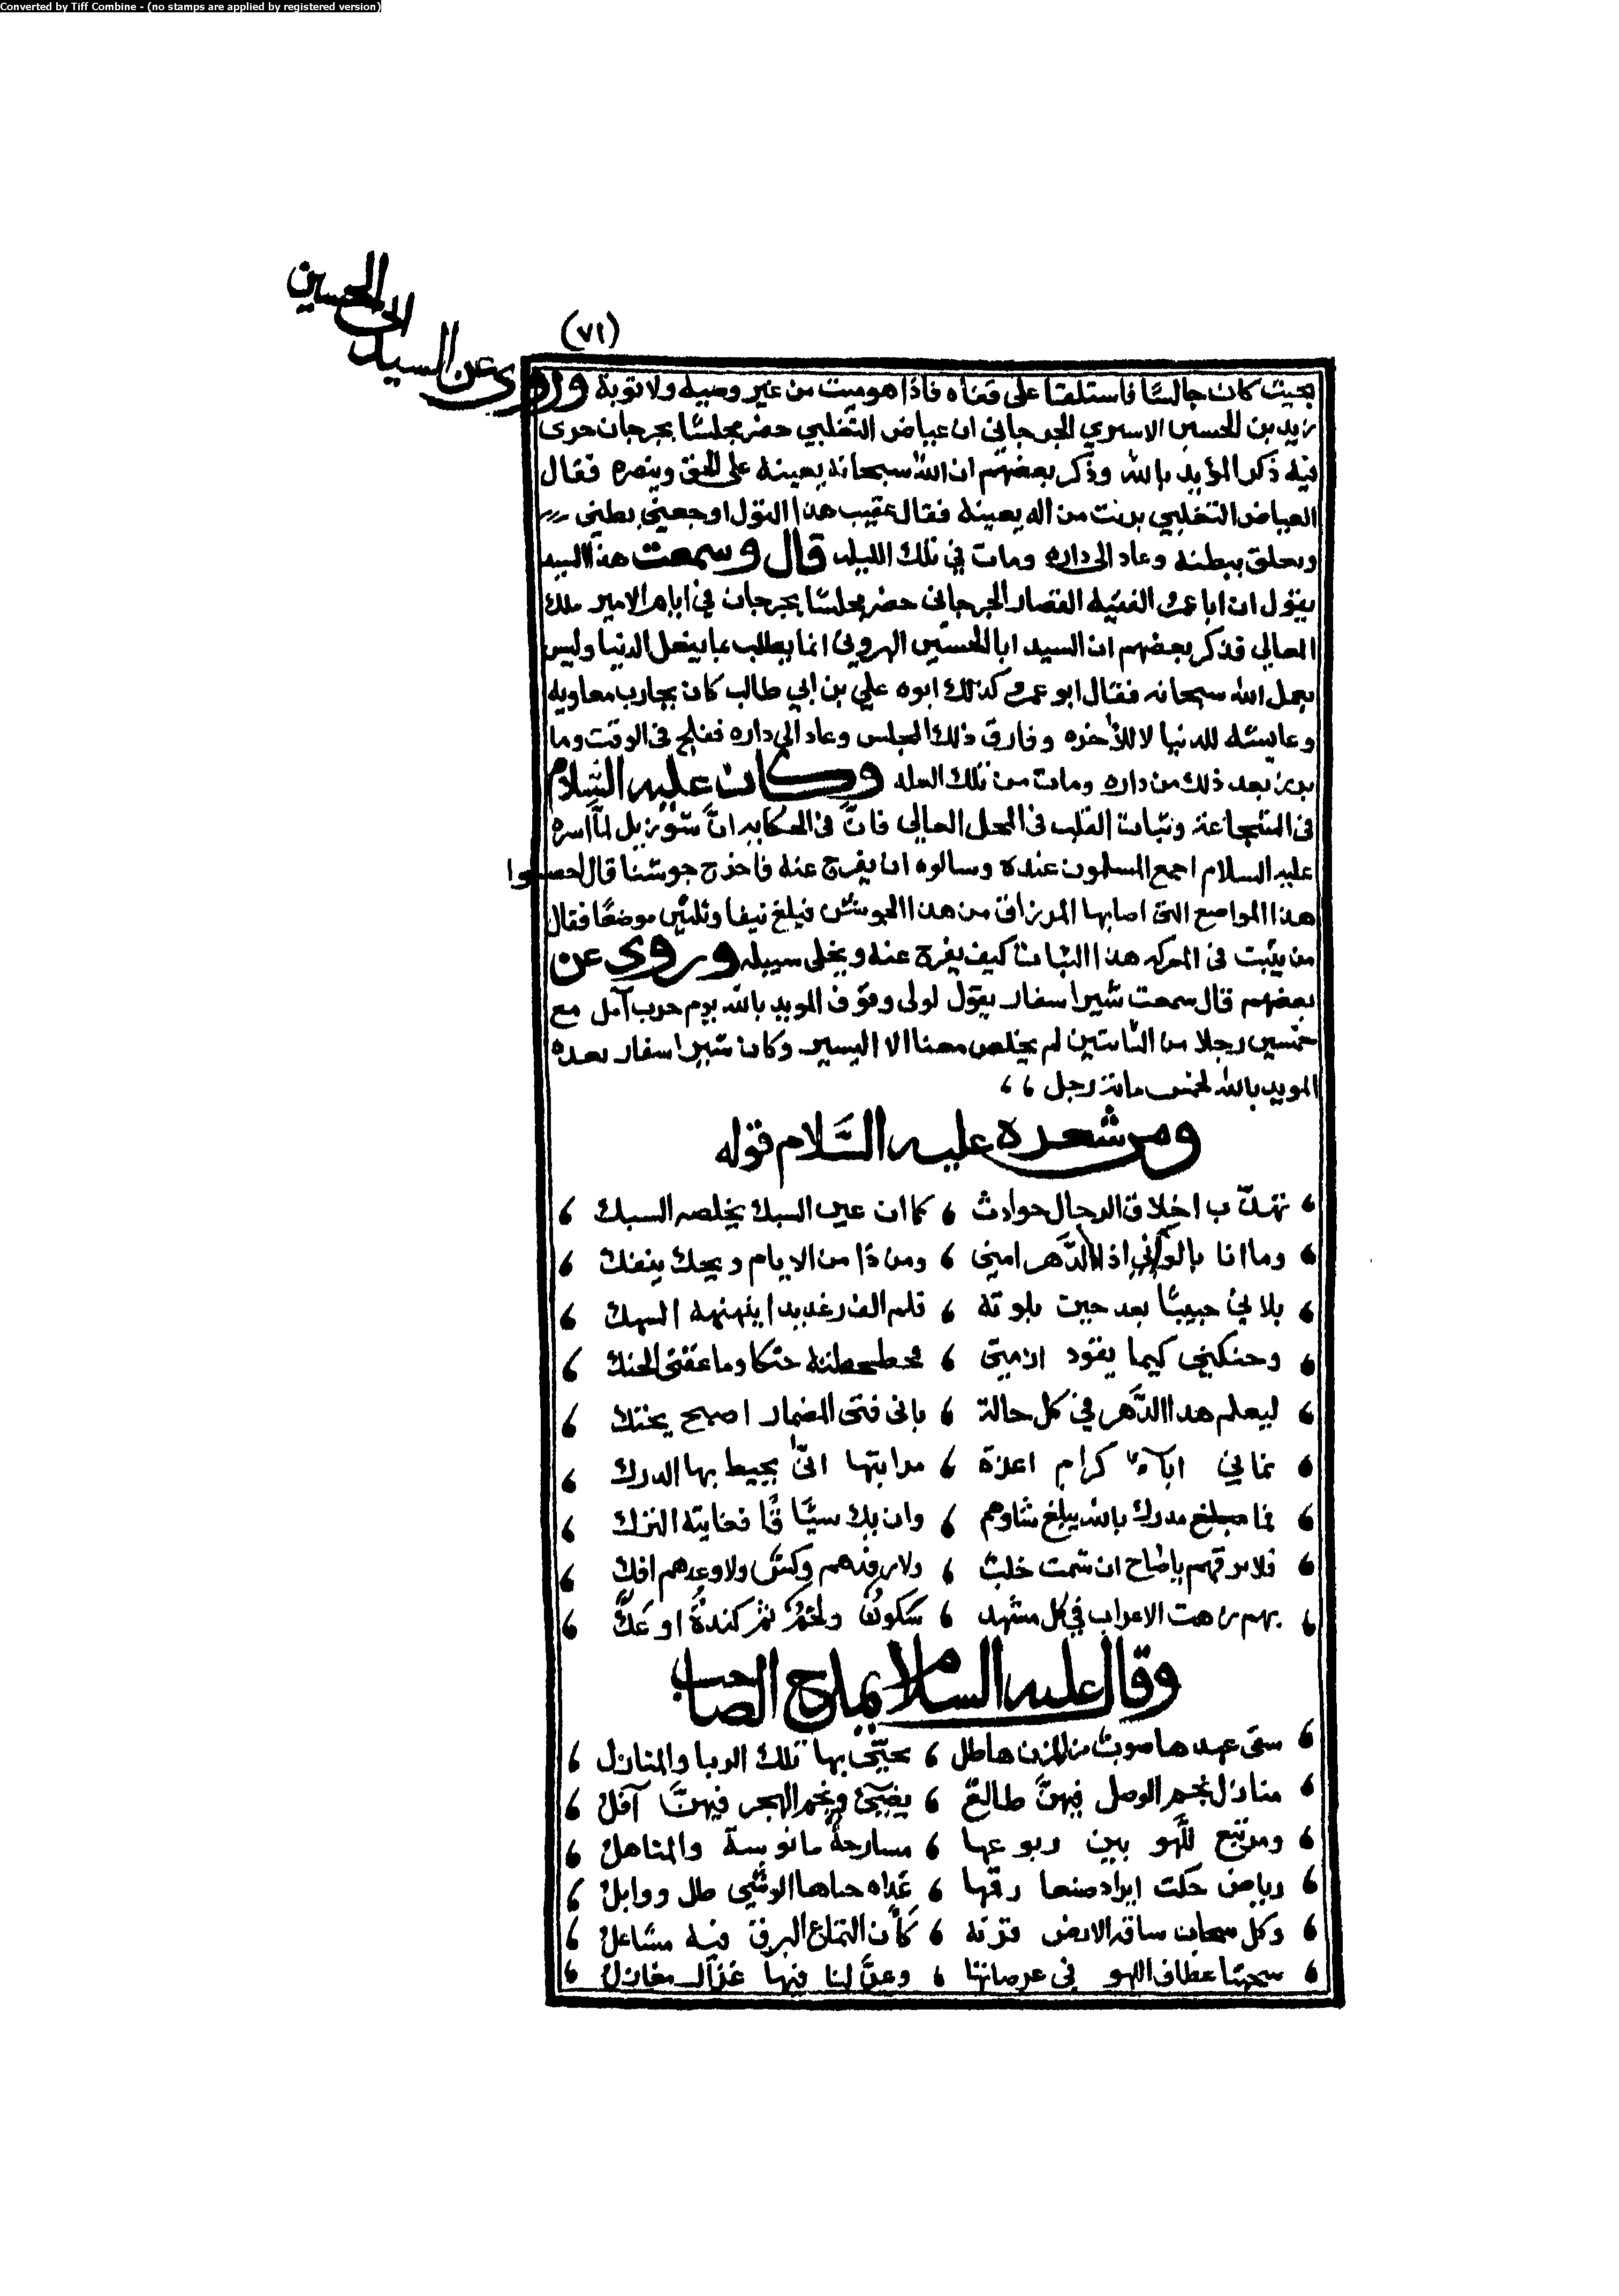 Converted by Tiff Combine - (no stamps are applied by registered version)
(٧١)
بحيث كان جالسًا فاستلقا على قفاه فاذا هو ميت من غير وصيه ولا توبة وروى عن السيد ابى الحسين
زيد بن الحسين الاسيري الجرجاني ان عياض التغلبي حضر مجلسًا بجرجان جرى
فيه ذكر المؤيد بالله وذكر بعضهم ان الله سبحانه يعينه على الحق وينصره فقال
العياض التغلبي برئت من اله يعينه فقال عقيب هذا القول اوجعني بطني
وتعلق ببطنه وعاد الى داره ومات في تلك الليله قال وسمعت هذا السيد
يقول ان ابا عمرو الفقيه القصار الجرجاني حضر مجلسًا بجرجان في ايام الامير ملك
المعالي فذكر بعضهم ان السيد ابا الحسين الهروني انما يطلب بما يفعل الدنيا وليس
بعمل الله سبحانه فقال ابو عمرو كذلك ابوه علي بن ابي طالب كان يحارب معاويه
وعايشه للدنيا لا للآخره وفارق ذلك المجلس وعاد الى داره ففلج فى الوقت وما
برز بعد ذلك من داره ومات من تلك العله وكان عليه السلام
فى الشجاعة وثبات القلب فى المحل العالي فانَّ فى الحكايه انَّ شوزيل لمَّا اسره
عليه السلام اجمع المسلمون عنده وسالوه ان يفرج عنه فاخرج جوشنا قال احسبوا
هذا المواضع التى اصابها المزراق من هذا الجوشن فبلغ نيفا وثلثين موضعًا فقال
من يثبت فى المعركه هذا الثبات كيف يفرج عنه ويخلى سبيله وروي عن
بعضهم قال سمعت شيرا سفار يقول لولى وقوف المويد بالله يوم حرب آمل مع
خمسين رجلا من الثابتين لم يخلص معنا الا اليسير وكان شيرا سفار بعده
المويد بالله لخمس مائة رجل ،،
ومن شعره عليه السَّلام قوله
، تهذّب اخلاق الرجال حوادث ، كما ان عين السبك يخلصه السبك ،
، وما انا بالوانى اذا الدَّهر امنى ، ومن ذا من الايام ويحك ينفك ،
، بلاني حبيبًا بعد حين بلوته ، فلم الف رغديدا ينهنهه السهك ،
، وحنكني كيما يقود ازمتى ، حتكا وما عقنى الحنك ،
، ليعلم هذا الدَّهر في كل حالة ، بانى فتى المضمار اصبح يحتك ،
، نماني اباء كرام اعزة ، مراتبها انىّ يحيط بها الدرك ،
، فما مبلغ مدرك بالله يبلغ شاوهم ، وان يك سبَّاقًا فغايته الترك ،
، فلا برقهم ياصاح ان شمت خلب ، ولا رفدهم وكس ولا وعدهم افك ،
، بهم زهت الاعراب في كل مشهد ، سَكونٌ ولخمٌ ثمَّ كندةُ او عَكُّ ،
وقال عليه السلام يمدح الصاحب
، سقى عهدها صوبٌ من المزن هاطل ، تحيّى بها تلك الربا والمنازل ،
، منازل نجم الوصل فيهنَّ طالعٌ ، يضيئ ونجم الهجر فيهنَّ آفلٌ ،
، ومرتبع للَّهو بين ربوعها ، مسارحهُ مانوسة والمناهلُ ،
، رياض حكت ابراد صنعا رقمها ، غداه حباها الوشي طل ووابلٌ ،
، وكل سحاب ساقه الارض قزنه ، كأن التماع البرق فيه مشاعلٌ ،
، سحبنا عطاف اللهو فى عرصاتها ، وعنَّ لنا فيها غزال مغازل ،